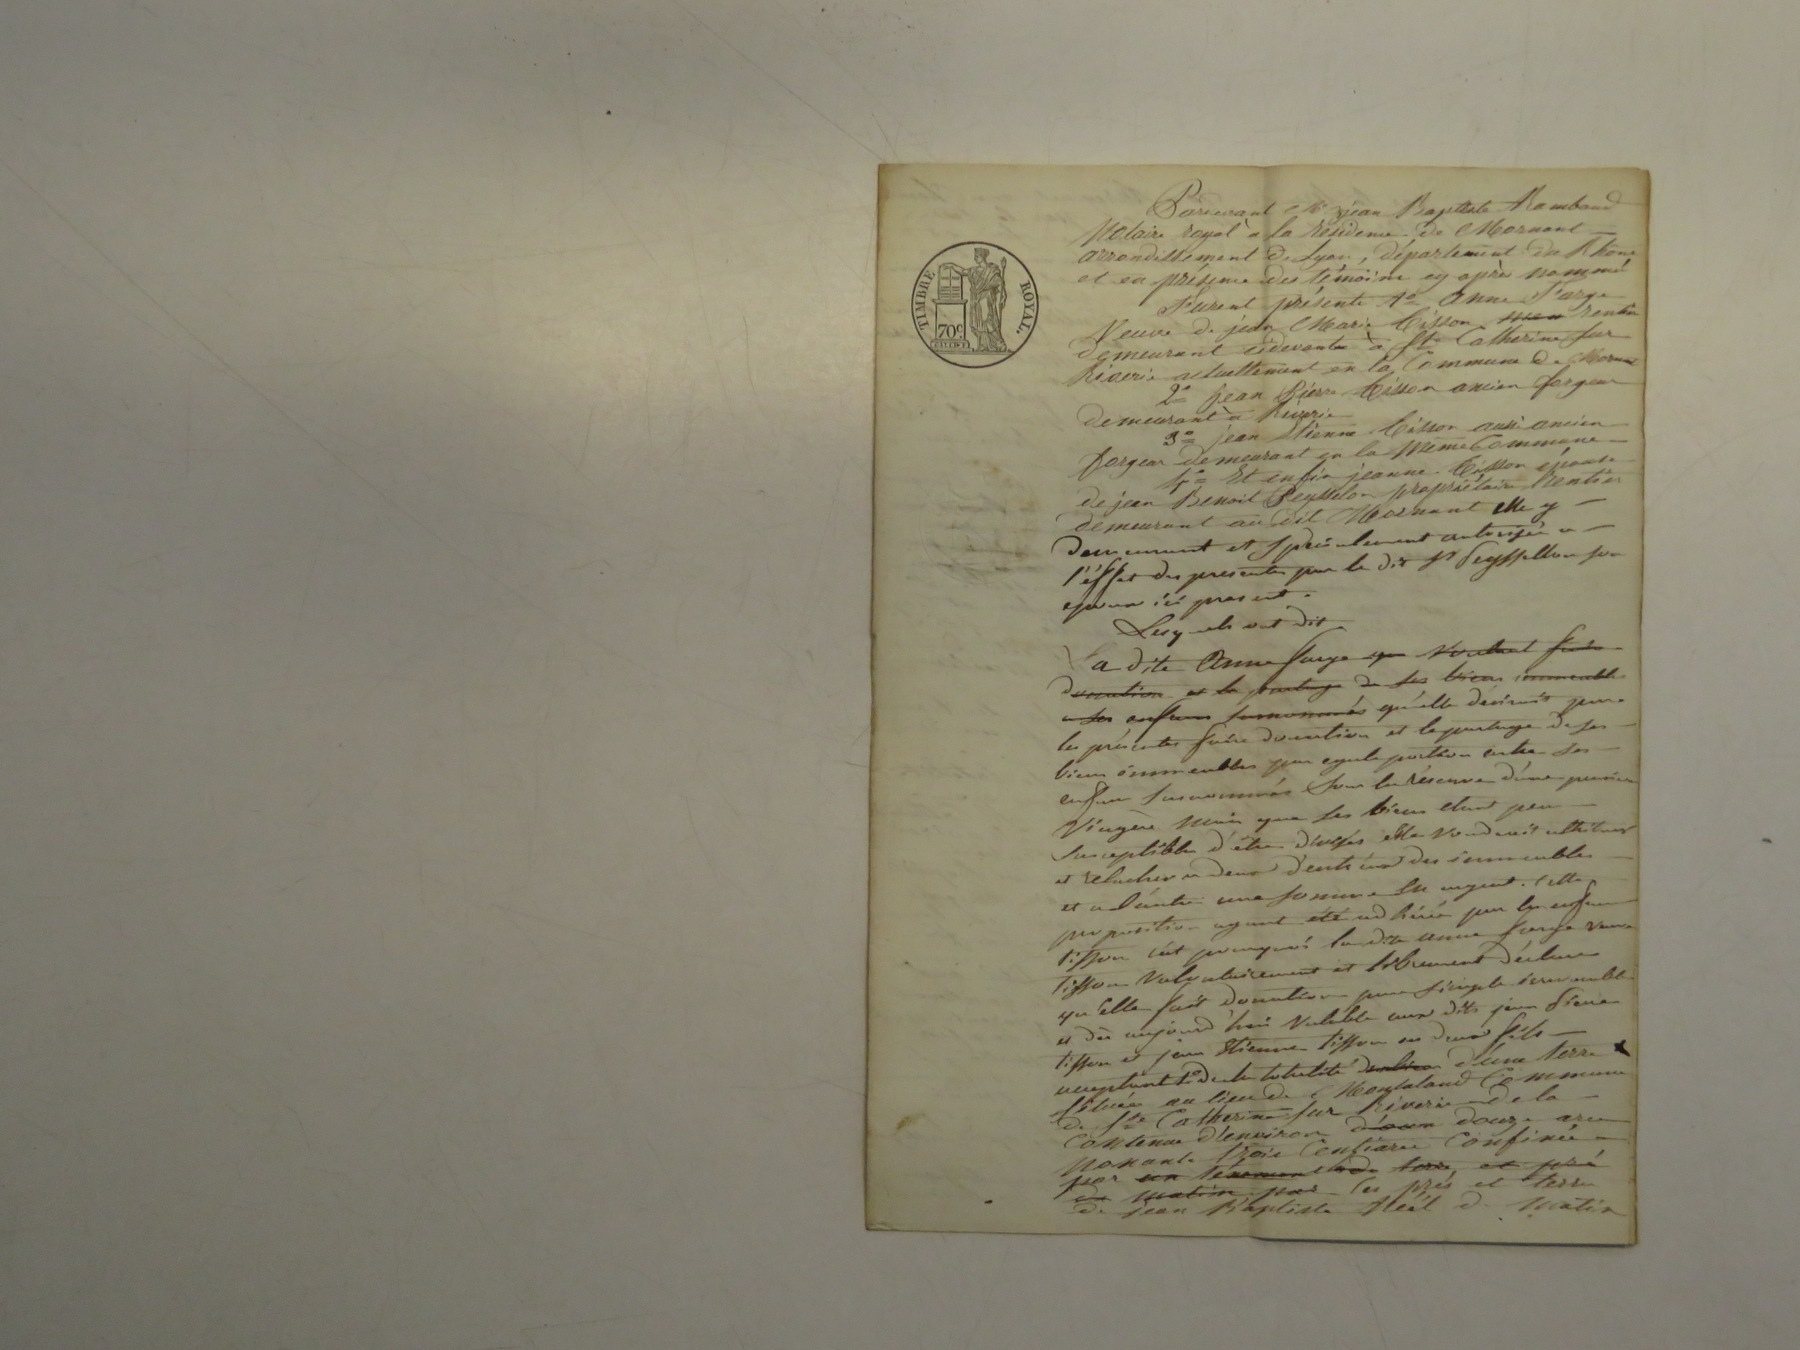 TIMBRE ROYAL.
70c
Pardevant Me jean Baptiste Rambaud
Notaire royal à la résidence de Mornant
arrondissement de Lyon, département du Rhône
et en présence des témoins cy après nommé
Furent présents 1o Anne Farge
Veuve de jean Marie Tisson rentière
demeurant cidevant à Ste Catherine sur
Riverie actuellement en la Commune de Mornant
2o jean Pierre Tisson ancien forgeur
demeurant à Riverie
3o jean Etienne Tisson aussi ancien
forgeur demeurant en la Même Commune
4o Et enfin jeanne Tisson épouse
de jean Benoit Peysselon propriétaire Rentier
demeurant au dit Mornant elle y
demeurant et spécialement autorisée a
l'effet des presentes par le dit Sr Peyssellon son
epoux ici present.
Lesquels ont dit
La dite Anne farge que voulant faire
donation et le partage de ses biens immeubles
a ses enfans surnommés qu'elle désirait par
les présentes faire donation et le partage de ses
biens immeubles par egale portion entre ses
enfans surnommés sous la réserve d'une pension
Viagère mais que ses biens etant peu
susceptibles d'être divisés elle voudrait attribuer
et relacher a deux d'entr'eux des immeubles
et a l'autre une somme en argent. Cette
proposition ayant été adhérée par les enfans
tisson c'est pourquoi la dite anne farge veuve
tisson volontairement et librement déclare
qu'elle fait donation pure simple irrevocable
et dès aujourd'hui valable aux dits jean Pierre
tisson et jean Etienne tisson ses deux fils
acceptant 1o de la totalité d'une terre
située au lieu de Commune
de Ste Catherine sur Riverie de la
Contenue d'environ douze ares
Nonante trois Centiares Confinée
par un tènement de terre, et pré
de matin par les prés et terre
de jean Baptiste de matin